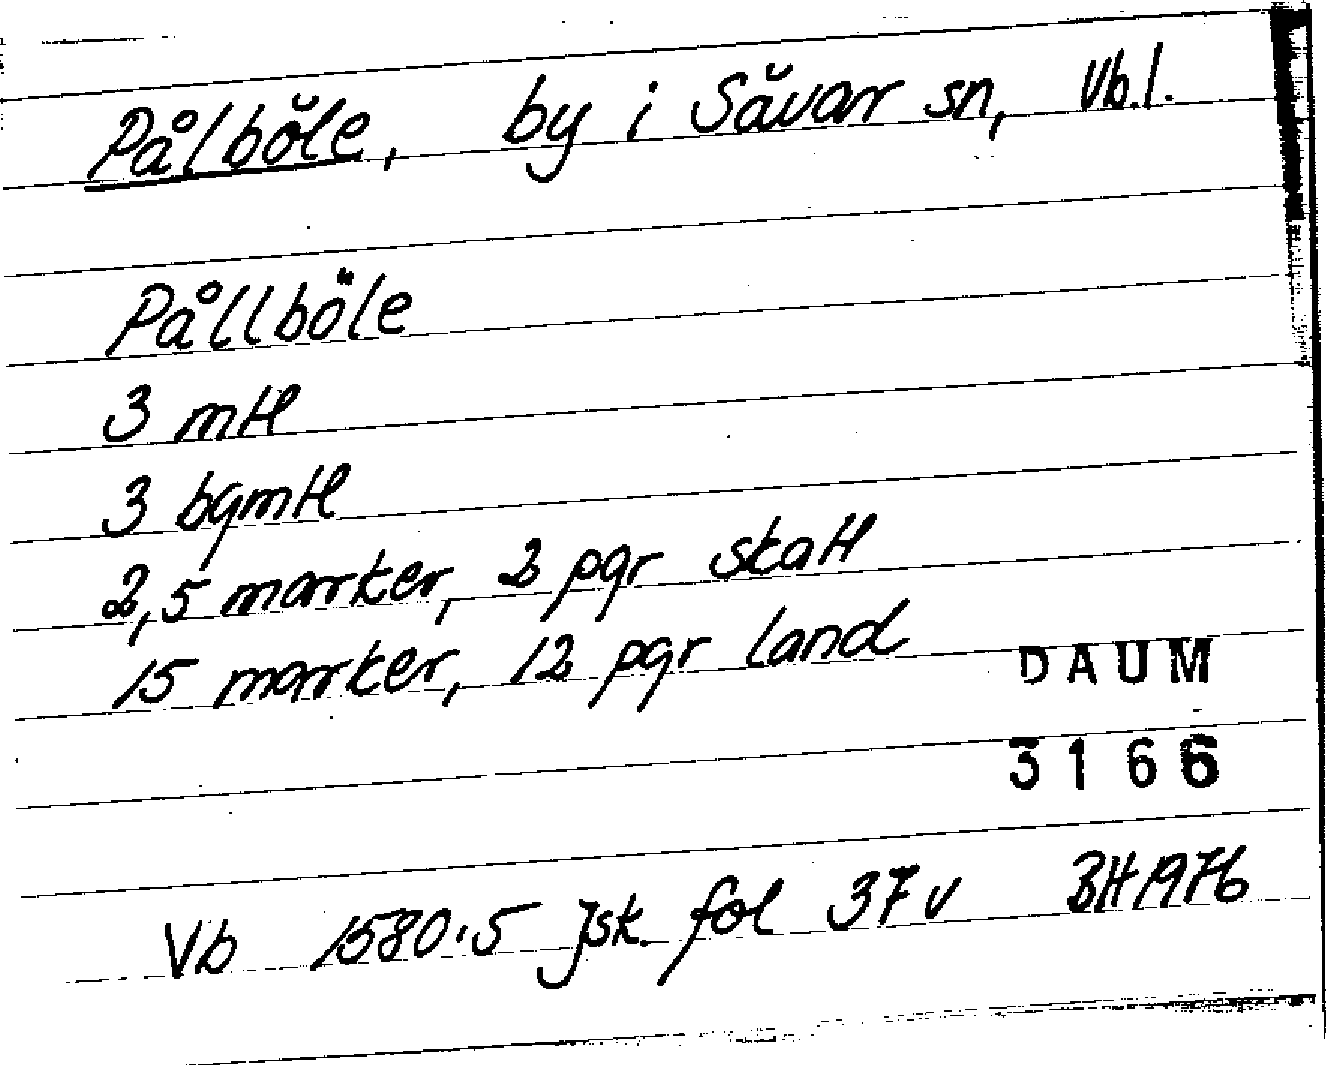 Pålböle, by i Sävar sn, Vb.l.
Pållböle
3 mtl
3 bgmtl
2,5 marker, 2 pgr skatt
15 marker, 12 pgr land
DAUM
3166
Vb 1580:5 Jsk fol 37 v BH 1976